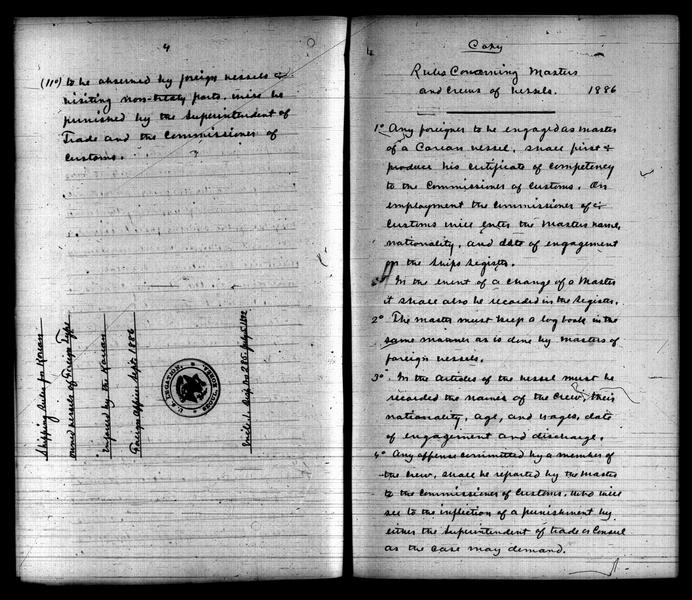 4
(11º) to be observed by foreign vessels
visiting non-treaty ports, will be
punished by the Superintendent of
Trade and the Commissioner of
Customs.
Shipping Rules for Korean
owned vessels of Foreign Type
required by the Korean
Foreign Office Sept. 1886
U.S. LEGATION, SEOUL, KOREA.
Encl. 1. Disp. No 285. July 5. 1892
Copy
Rules Concerning Masters
and Crews of Vessels. 1886
1º Any foreigner to be engaged as master
of a Corean vessel, shall first
produce his certificate of competency
to the Commissioner of Customs. On
employment the Commissioner of
Customs will enter the Masters name,
nationality, and date of engagement
on the Ships Register.
In the event of a change of a Master
it shall also be recorded in the Register.
2º The master must keep a log book in the
same manner as is done by masters of
foreign vessels.
3º In the Articles of the vessel must be
recorded the names of the Crew, their
nationality, age, and wages, date
of engagement and discharge.
4º Any offense committed by a member of
the crew, shall be reported by the Master
to the Commissioner of Customs, who will
see to the infliction of a punishment by
either the Superintendent of trade or Consul
as the case may demand.